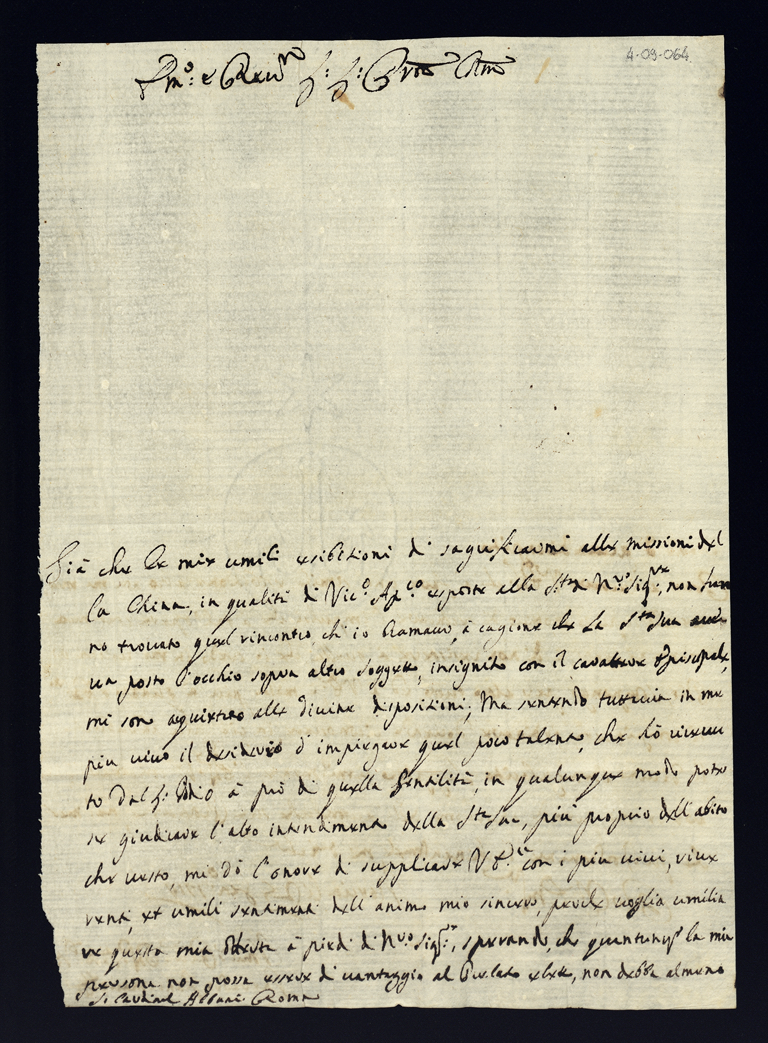 4-09-064
Em.º e Rev.mo S.r S.r P.rone Col.mo
Già che le mie umili esibizioni di sagrificarmi alle missioni del
la China, in qualità di Vic.º Ap.co esposte alla S.tà di N.ro Sig.re, non han
no trovato quel rincontro, ch'io bramavo, à cagione che La S.tà Sua avev
va posto l'occhio sopra altro soggetto, insignito con il carattere Episcopale,
mi sono acquietato alle divine disposizioni; Ma sentendo tuttavia in me
piu vivo il desiderio d'impiegare quel poco talento, che hò ricevu
to dal S.r Iddio à prò di quella Gentilità, in qualunque modo potes
se giudicare l'alto intendimento della S.tà Sua, più proprio dell'abito
che vesto, mi dò l'onore di supplicare V.E. con i piu vivi, rive
renti, et umili sentimenti dell'animo mio sincero, perche voglia umilia
re questa mia à piedi di N.ro Sig.re, sperando, che quantunq.e la mia
persona non possa essere di vantaggio al Prelato eletto, non debba almeno
S.r Cardinal Albani Roma